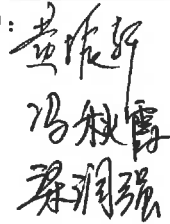 :
黄振轩
冯秋霞
梁润强